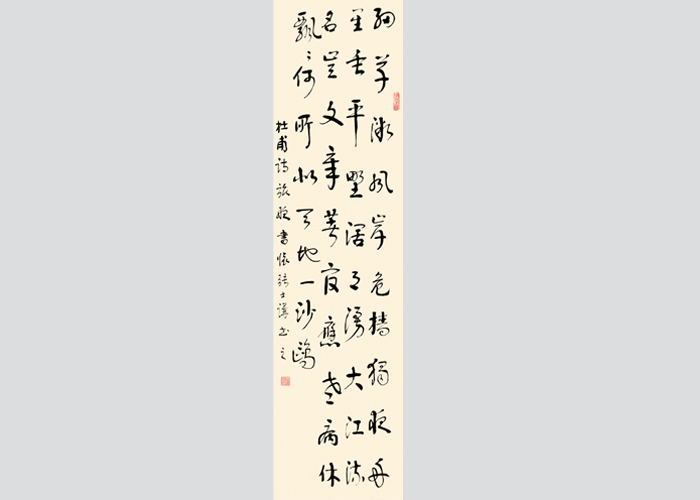 細草微風岸危檣獨夜舟
星垂平野闊月湧大江流
名豈文章著官應老病休
飄飄何所似天地一沙鷗
杜甫詩旅夜書懷 士 書之